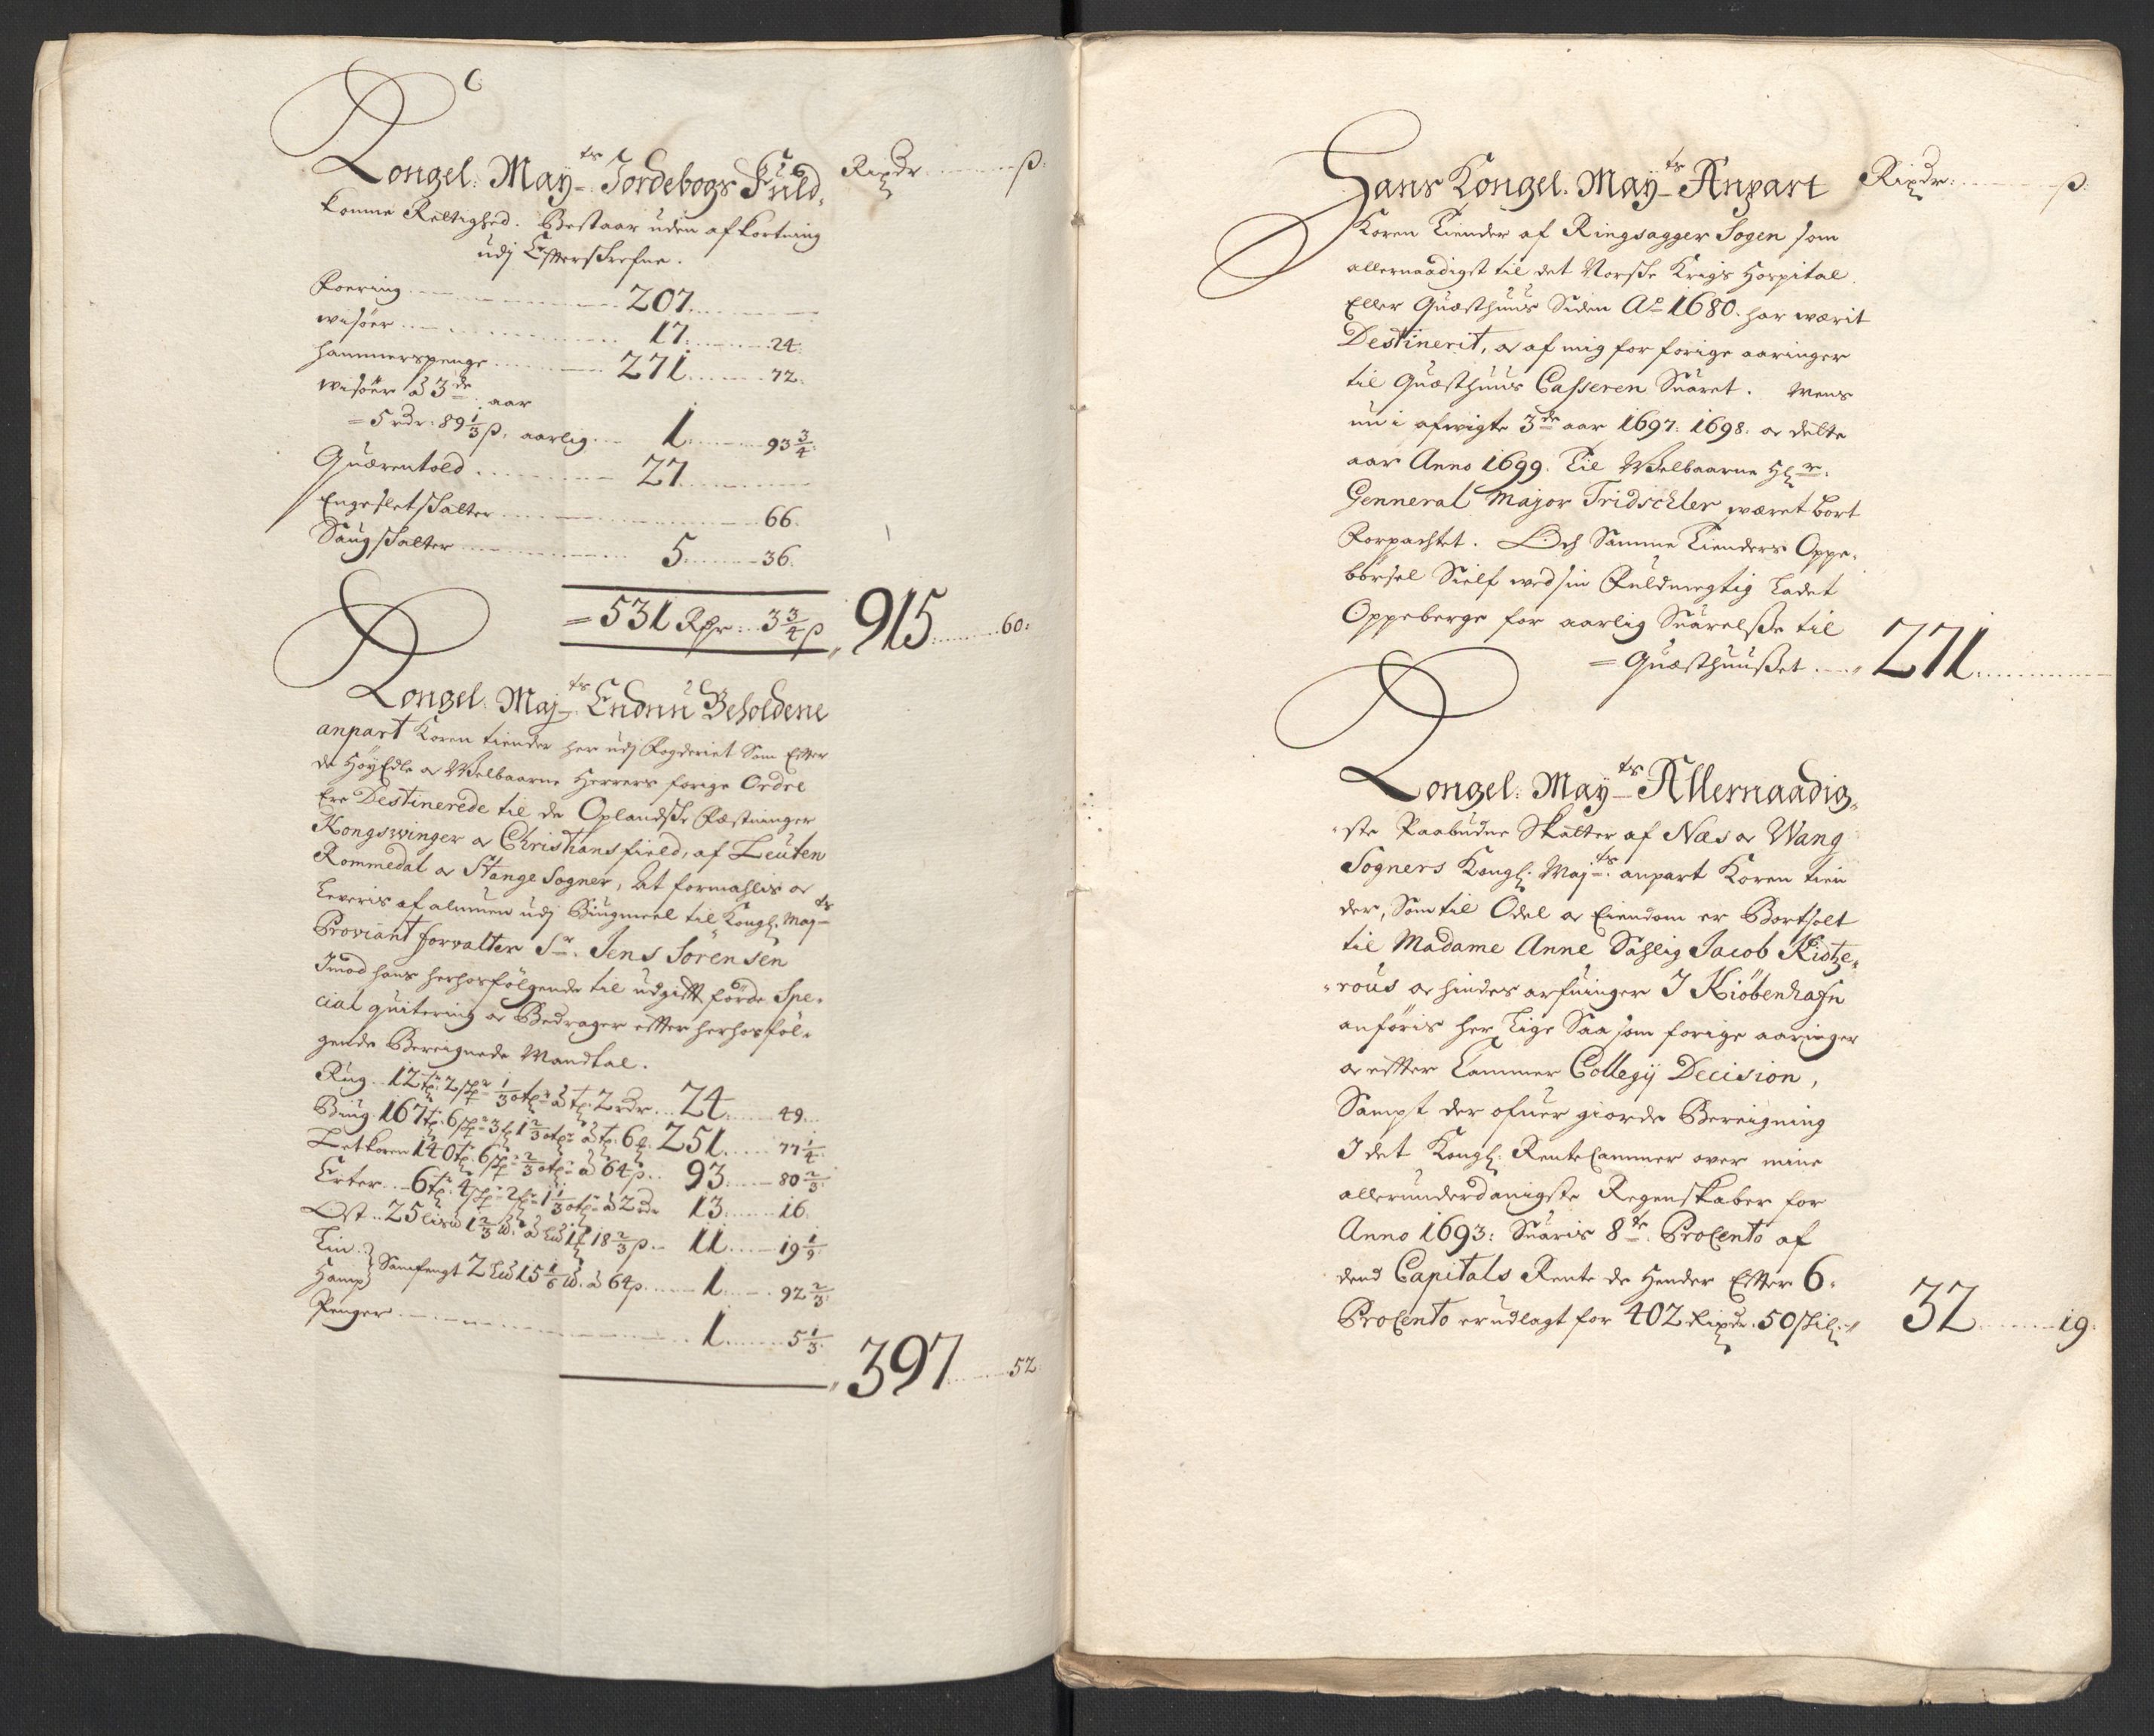 Kongel: May.ts Jordebogs Fuld, Rixdr ß:
komne Rettighed. Bestaar uden afkortning
udj Effterskrefne.
Foering 207
wisöer 17 24:
hammerspenge 271 72:
wisöer à 3de aar
= 5 rdr: 89 1/3 ß, aarlig 1 93 3/4:
Quærentold 27
Engesletskatter 66.
Saugskatter 5 36.
= 531 Rdr: 3 3/4 ß 915 60:
Kongel: Maj.ts Endnu Beholdene
anpart Koren tiender her udj Fogderiet Som Effter
de HöyEdle oc Welbaarne Herrers forige Ordre
Ere Destinerede til de Oplandske Fæstninger
Kongswinger oc Christiansfield, af Leuten
Rommedal oc Stange Sogner, at formahlis oc
Leveris af almuen udj Biugmeel til Kongl. May.ts
Proviant forvalter Sr. Jens Sörensen
Imod hans herhosfölgende til udgifft förde Spe,
cial quitering oc Bedrager effter herhosföl,
gende Beregnede Mandtal.
Rug 12 tr 2 1/3 à 2 rdr 24 49
Biug 167 tr 6 3 1 2/3 251 77 1/4
Letkoren 140 tr 6 2/3 à 64 ß 93 80 2/3
Erter 6 tr 4 2 1 1/3 à 2 rdr 13 16.
Ost 25 1 2/3 18 2/3 ß 11 19 1/9
Lin
Hamp Samfengt 2 15 1/6 à 64 ß 1 92 2/3:
Penger 1 5 1/3:
397 52
Hans Kongel. May.ts Anpart Rixdr: ß:
Koren Tiender af Ringsagger Sogen som
allernaadigst til det Norske Krigs Hospital.
Eller Quæsthuus Siden Ao 1680. har wærit
Destinerit, oc af mig for forige aaringer
til Quæsthuus Casseren Suaret. Mens
nu i afvigte 3de aar 1697: 1698. oc dette
aar Anno 1699. Til Welbaarne Hr.
Genneral Major Tridschler wæret bort
Forpachtet. Och Samme Tienders Oppe,
börsel Sielf ved sin Fuldmegtig Ladet
Oppeberge for aarlig Suarelsse til
= Quæsthuusset 271
Kongel: May.ts Allernaadig,
ste Paabudne Skatter af Næs oc Wang
Sogners Kongl. Maj.ts anpart Koren tien
der, Som til Odel oc Eiendom er Bortsolt
til Madame Anne Sahlig Jacob Kidtze,
rous oc hindes arfuinger I Kiöbenhafn
anföris her Lige Saa som forige aaringer
oc effter Cammer Collegij Decision,
Sampt der ofuer giorde Bereigning
I det Kongl. RenteCammer over mine
allerunderdanigste Regenskaber for
Anno 1693: Suaris 8te ProCento af
dend Capitals Rente de Hender Effter 6.
ProCento er udlagt for 402 Rixdr. 50 skil. 32 19.